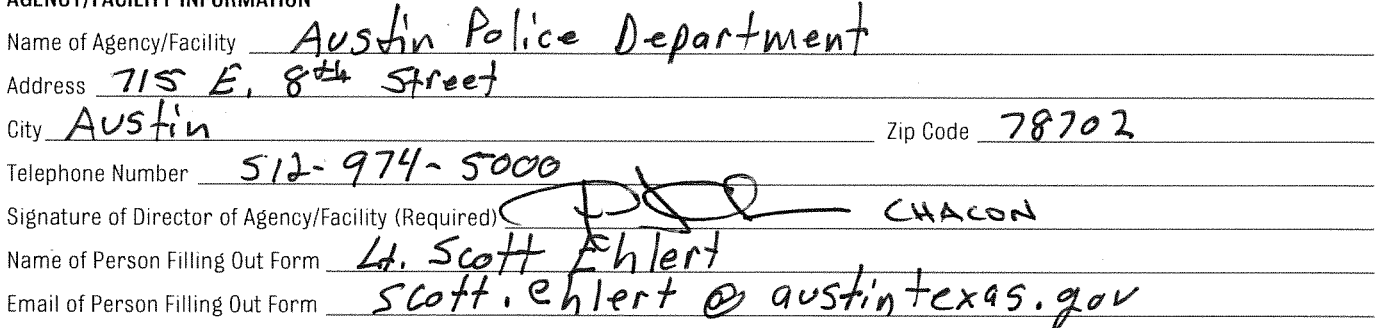 AGENCY/FACILITY INFORMATION
Name of Agency/Facility Austin Police Department
Address 715 E. 8th Street
City Austin Zip Code 78702
Telephone Number 512-974-5000
Signature of Director of Agency/Facility (Required) CHACON
Name of Person Filling Out Form Lt. Scott Ehlert
Email of Person Filling Out Form scott.ehlert@austintexas.gov